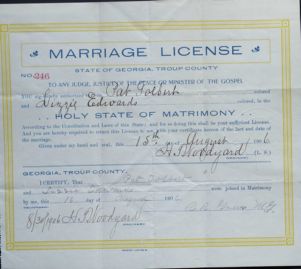 MARRIAGE LICENSE
STATE OF GEORGIA, TROUP COUNTY
NO. 246
TO ANY JUDGE, JUSTICE OF THE PEACE OR MINISTER OF THE GOSPEL
YOU are hereby authorized to join Pat Tolbert colored
and Lizzie Edwards colored, in the
HOLY STATE OF MATRIMONY
According to the Constitution and Laws of this State; and for so doing this shall be your sufficient License.
And you are hereby required to return this License to me with your certificate hereon of the fact and date of
the marriage.
Given under my hand and seal, this 15th day of August 1906
H. T. Woodyard (L. S.)
GEORGIA, TROUP COUNTY.
I CERTIFY, That Pat Tolbert
and Lizzie Edwards were joined in Matrimony
by me, this day of August 1906
8/30/1906 H. T. Woodyard